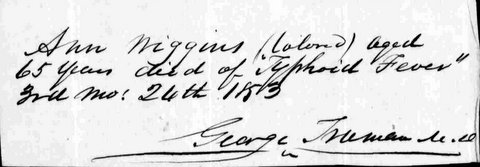 Ann Wiggins (Colored) aged
65 Years died of "Typhoid Fever"
3rd Mo: 24th 1853
George Truman M.D